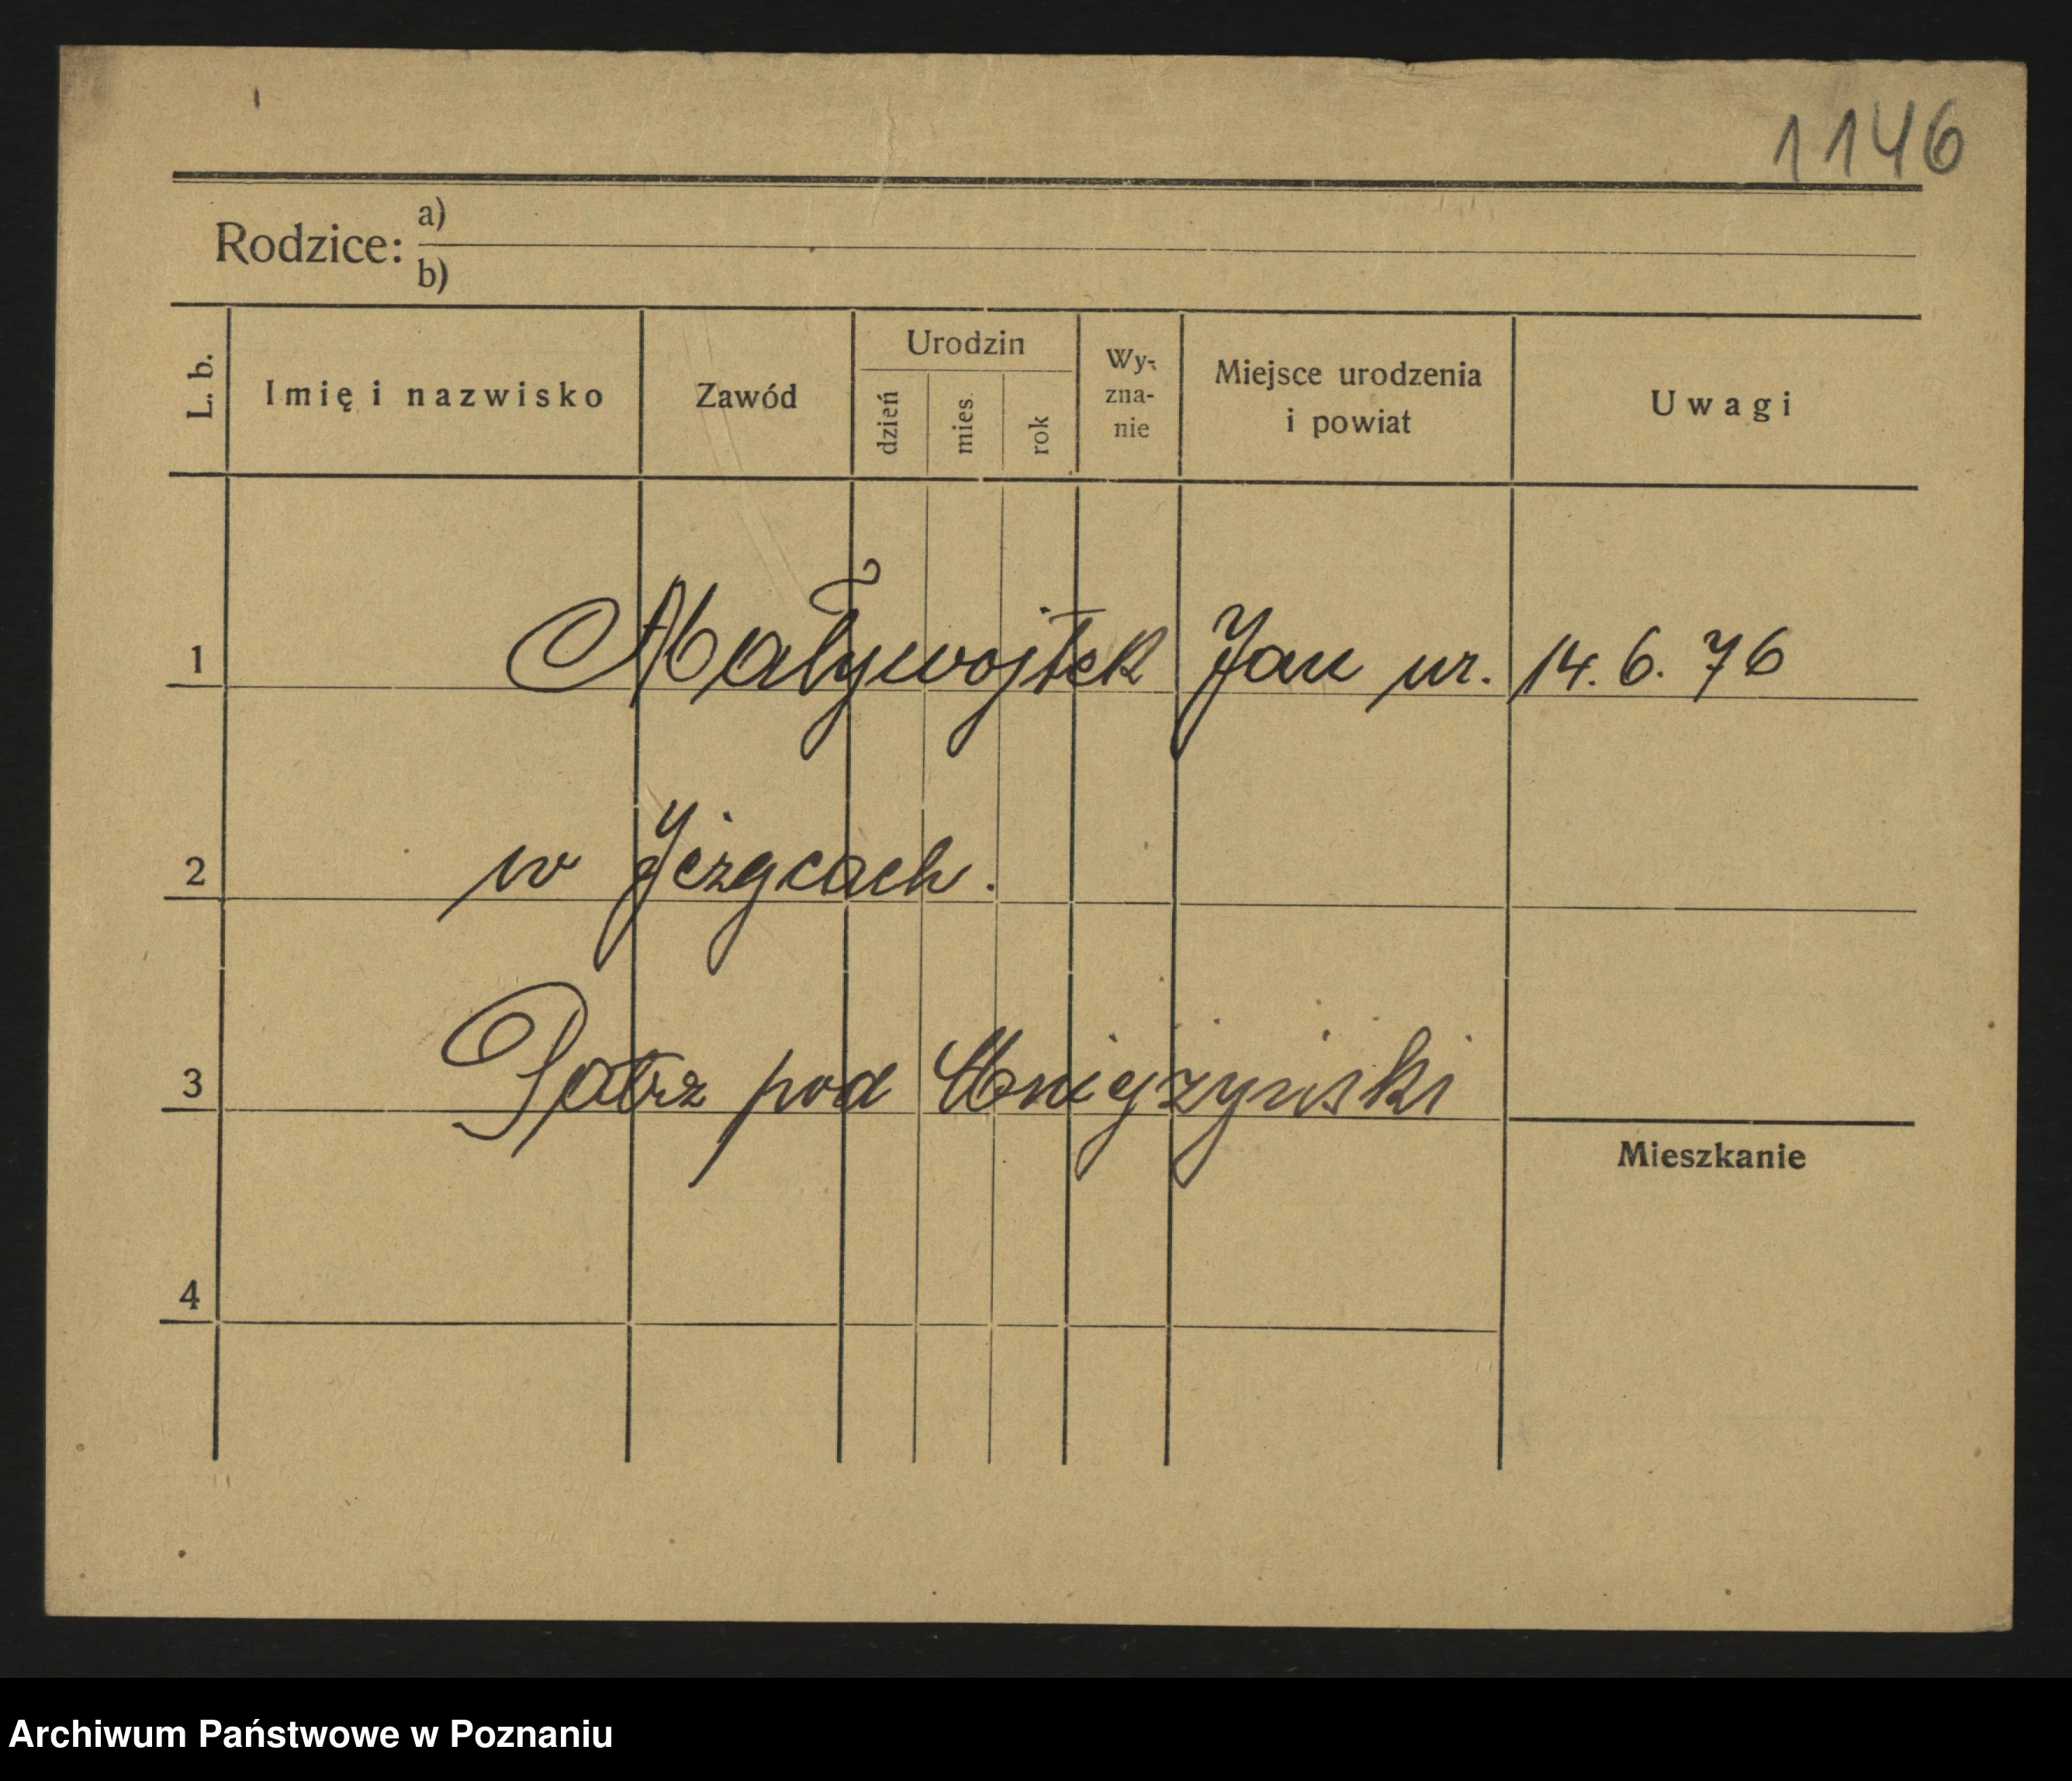 1146
Rodzice: a)
b)
L. b.
Imię i nazwisko
Zawód
Urodzin
dzień
mies.
rok
Wy-
zna-
nie
Miejsce urodzenia
i powiat
Uwagi
1
Maływojtek Jan ur. 14. 6. 76
2
w Jeżycach.
3
Patrz pod
Mieszkanie
4
Archiwum Państwowe w Poznaniu